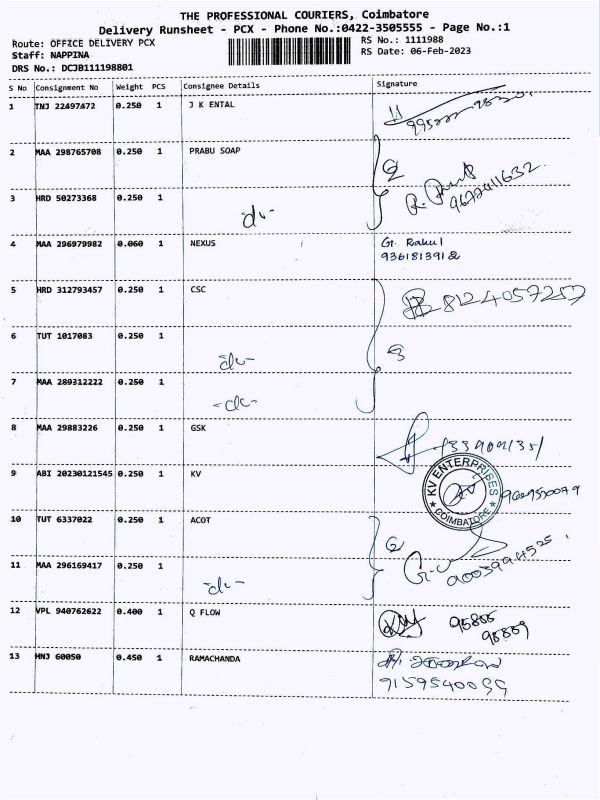 THE PROFESSIONAL COURIERS, Coimbatore
Delivery Runsheet - PCX - Phone No.:0422-3505555 - Page No.:1
Route: OFFICE DELIVERY PCX
Staff: NAPPINA
DRS No.: DCJB111198801
RS No.: 1111988
RS Date: 06-Feb-2023
S No Consignment No Weight PCS Consignee Details Signature
1 TNJ 22497472 0.250 1 J K ENTAL
2 MAA 298765708 0.250 1 PRABU SOAP
3 HRD 50273368 0.250 1
9677411632
4 MAA 296979982 0.060 1 NEXUS G. Rahul
5 HRD 312793457 0.250 1 CSC 8124057257
6 TUT 1017083 0.250 1
7 MAA 289312222 0.250 1
8 MAA 29883226 0.250 1 GSK
9 ABI 20230121545 0.250 1 KV
KV ENTERPRISES
★ COIMBATORE ★
10 TUT 6337022 0.250 1 ACOT
11 MAA 296169417 0.250 1
12 VPL 940762622 0.400 1 Q FLOW
13 HNJ 60050 0.450 1 RAMACHANDA